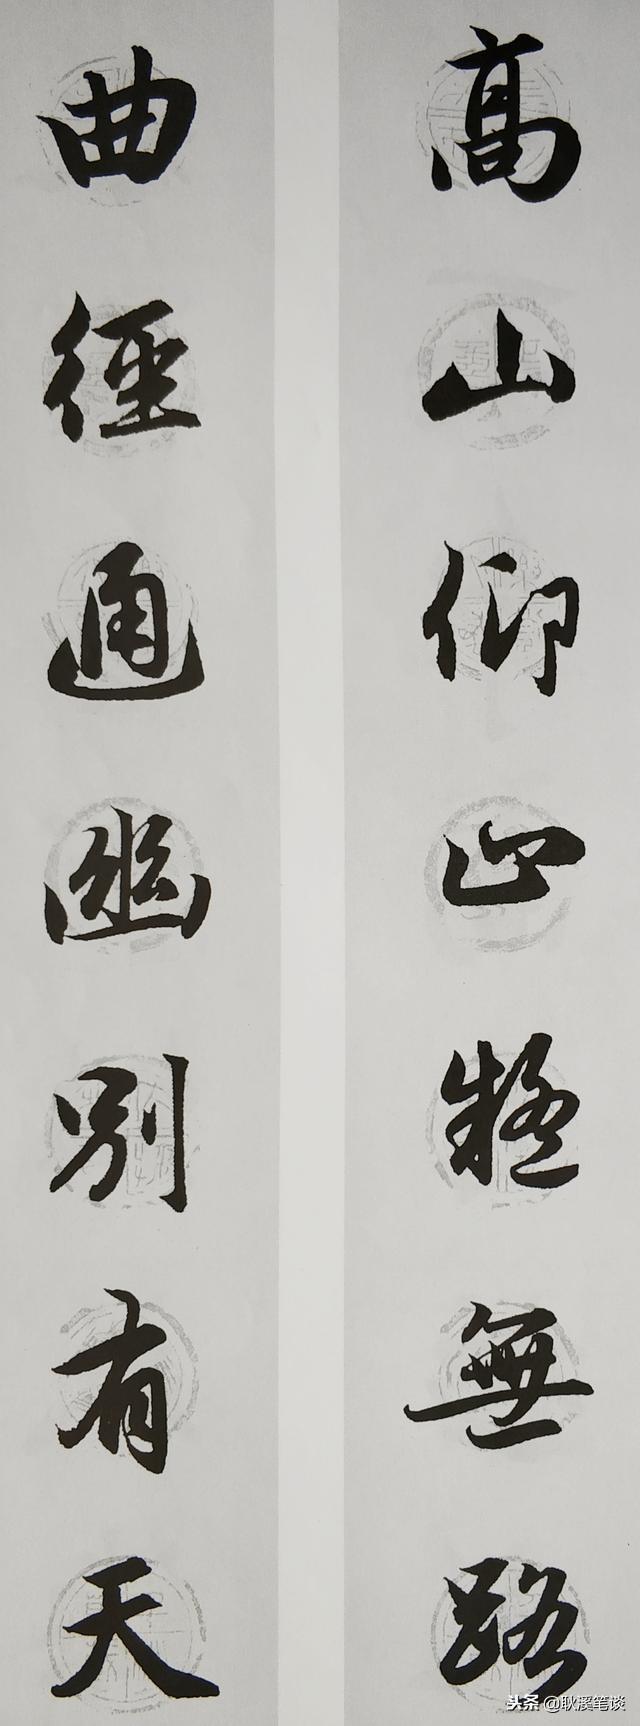 高山仰止疑無路
曲徑通幽別有天
头条 @耿溪笔谈